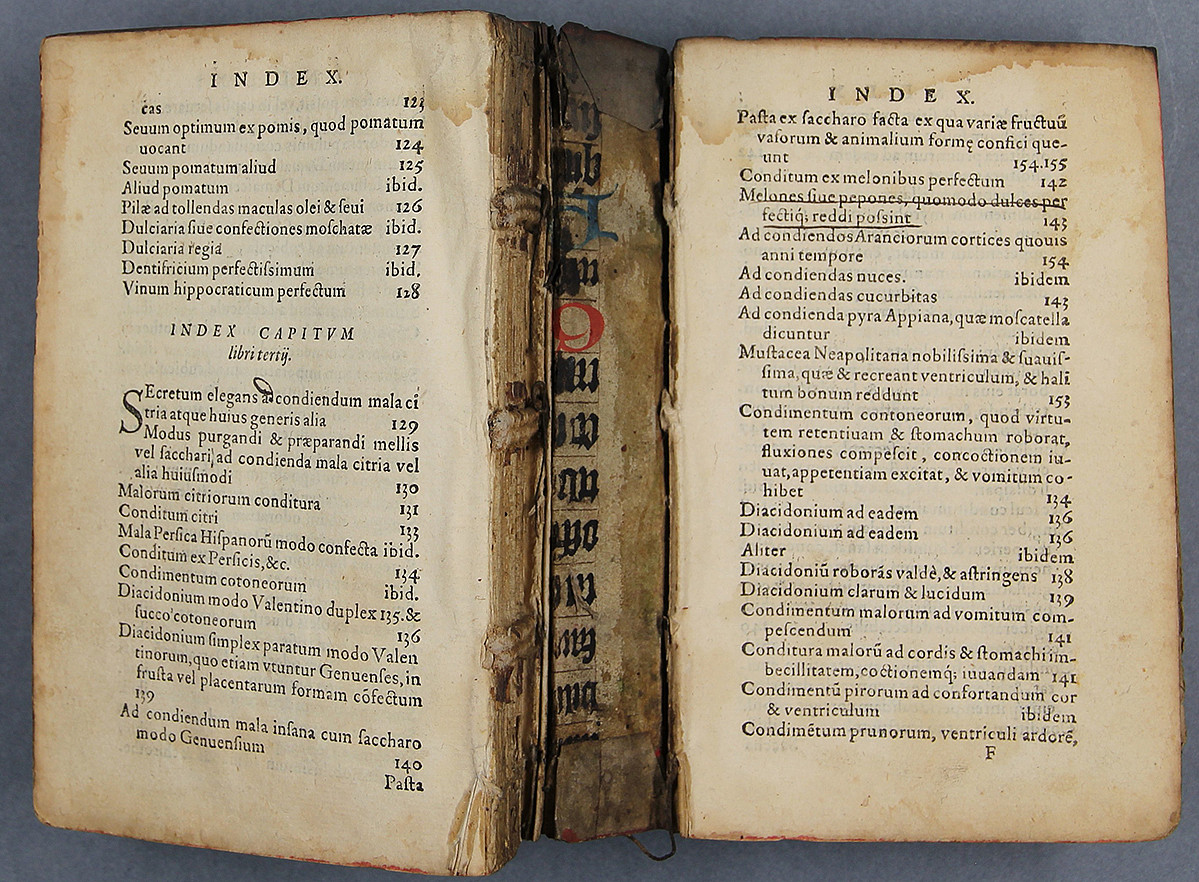 INDEX.
cas 123
Seuum optimum ex pomis, quod pomatum
uocant 124
Seuum pomatum aliud 125
Aliud pomatum ibid.
Pilæ ad tollendas maculas olei & seui 126
Dulciaria siue confectiones moschatæ ibid.
Dulciaria regia 127
Dentifricium perfectissimum ibid.
Vinum hippocraticum perfectum 128
INDEX CAPITVM
libri tertij.
SEcretum elegans ad condiendum mala ci
tria atque huius generis alia 129
Modus purgandi & præparandi mellis
vel sacchari, ad condienda mala citria vel
alia huiusmodi 130
Malorum citriorum conditura 131
Conditum citri 133
Mala Persica Hispanorū modo confecta ibid.
Conditum ex Persicis, &c. 134
Condimentum cotoneorum ibid.
Diacidonium modo Valentino duplex 135. &
succo cotoneorum 136
Diacidonium simplex paratum modo Valen
tinorum, quo etiam vtuntur Genuenses, in
frusta vel placentarum formam cōfectum
139
Ad condiendum mala insana cum saccharo
modo Genuensium 140
Pasta
INDEX.
Pasta ex saccharo facta ex qua variæ fructuū
vasorum & animalium formę confici que-
unt 154.155
Conditum ex melonibus perfectum 142
Melones siue pepones, quomodo dulces per
fectiq; reddi possint 143
Ad condiendos Aranciorum cortices quouis
anni tempore 154
Ad condiendas nuces. ibidem
Ad condiendas cucurbitas 143
Ad condienda pyra Appiana, quæ moscatella
dicuntur ibidem
Mustacea Neapolitana nobilissima & suauis-
sima, quæ & recreant ventriculum, & hali
tum bonum reddunt 153
Condimentum contoneorum, quod virtu-
tem retentiuam & stomachum roborat,
fluxiones compescit, concoctionem iu-
uat, appetentiam excitat, & vomitum co-
hibet 134
Diacidonium ad eadem 136
Diacidonium ad eadem 136
Aliter ibidem
Diacidoniū roborās valdè, & astringens 138
Diacidonium clarum & lucidum 139
Condimentum malorum ad vomitum com-
pescendum 141
Conditura malorū ad cordis & stomachi im-
becillitatem, coctionemq; iuuandam 141
Condimentū pirorum ad confortandum cor
& ventriculum ibidem
Condimētum prunorum, ventriculi ardorē,
F